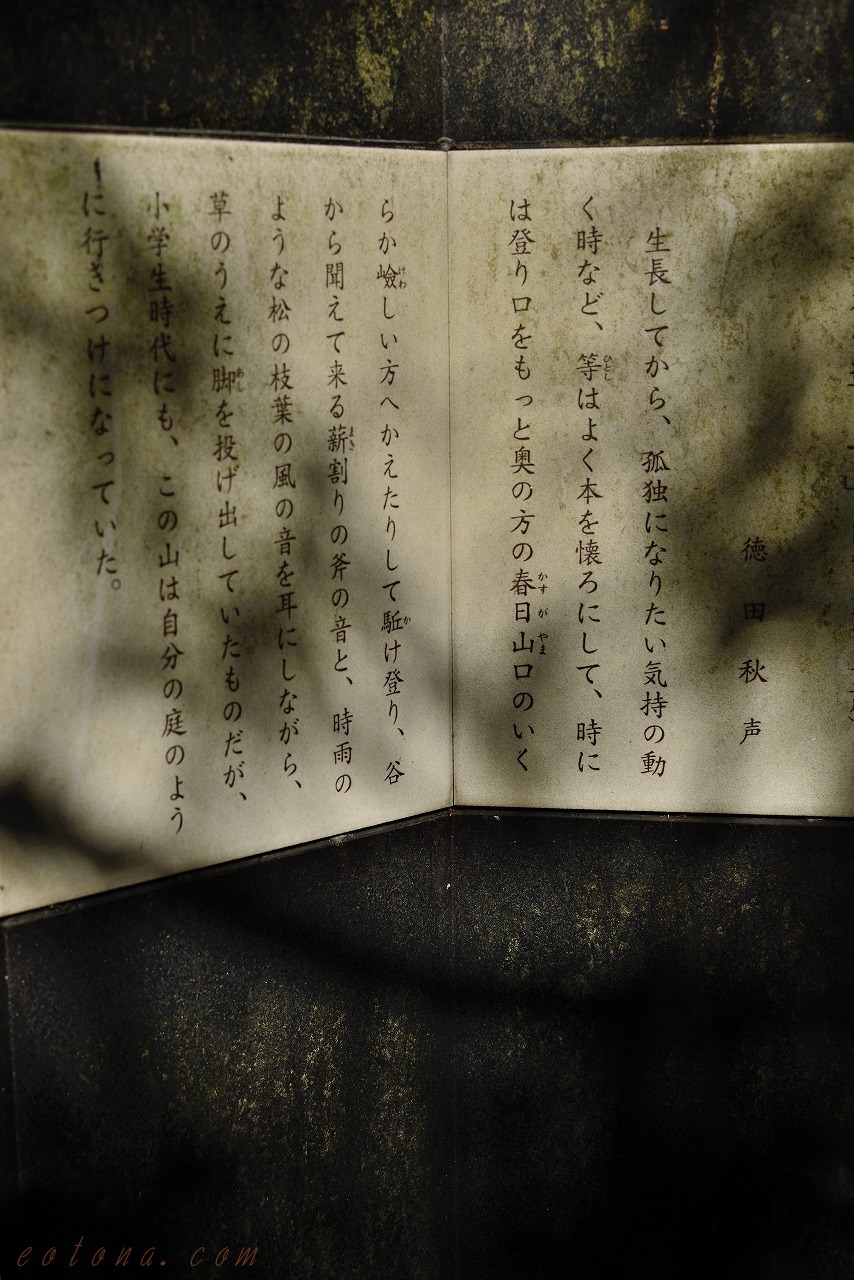 徳田秋声
生長してから、孤独になりたい気持の動
く時など、等はよく本を懐ろにして、時に
は登り口をもっと奥の方の春日山口のいく
らか嶮しい方へかえたりして駈け登り、谷
から聞えて来る薪割りの斧の音と、時雨の
ような松の枝葉の風の音を耳にしながら、
草のうえに脚を投げ出していたものだが、
小学生時代にも、この山は自分の庭のよう
に行きつけになっていた。
eotona.com